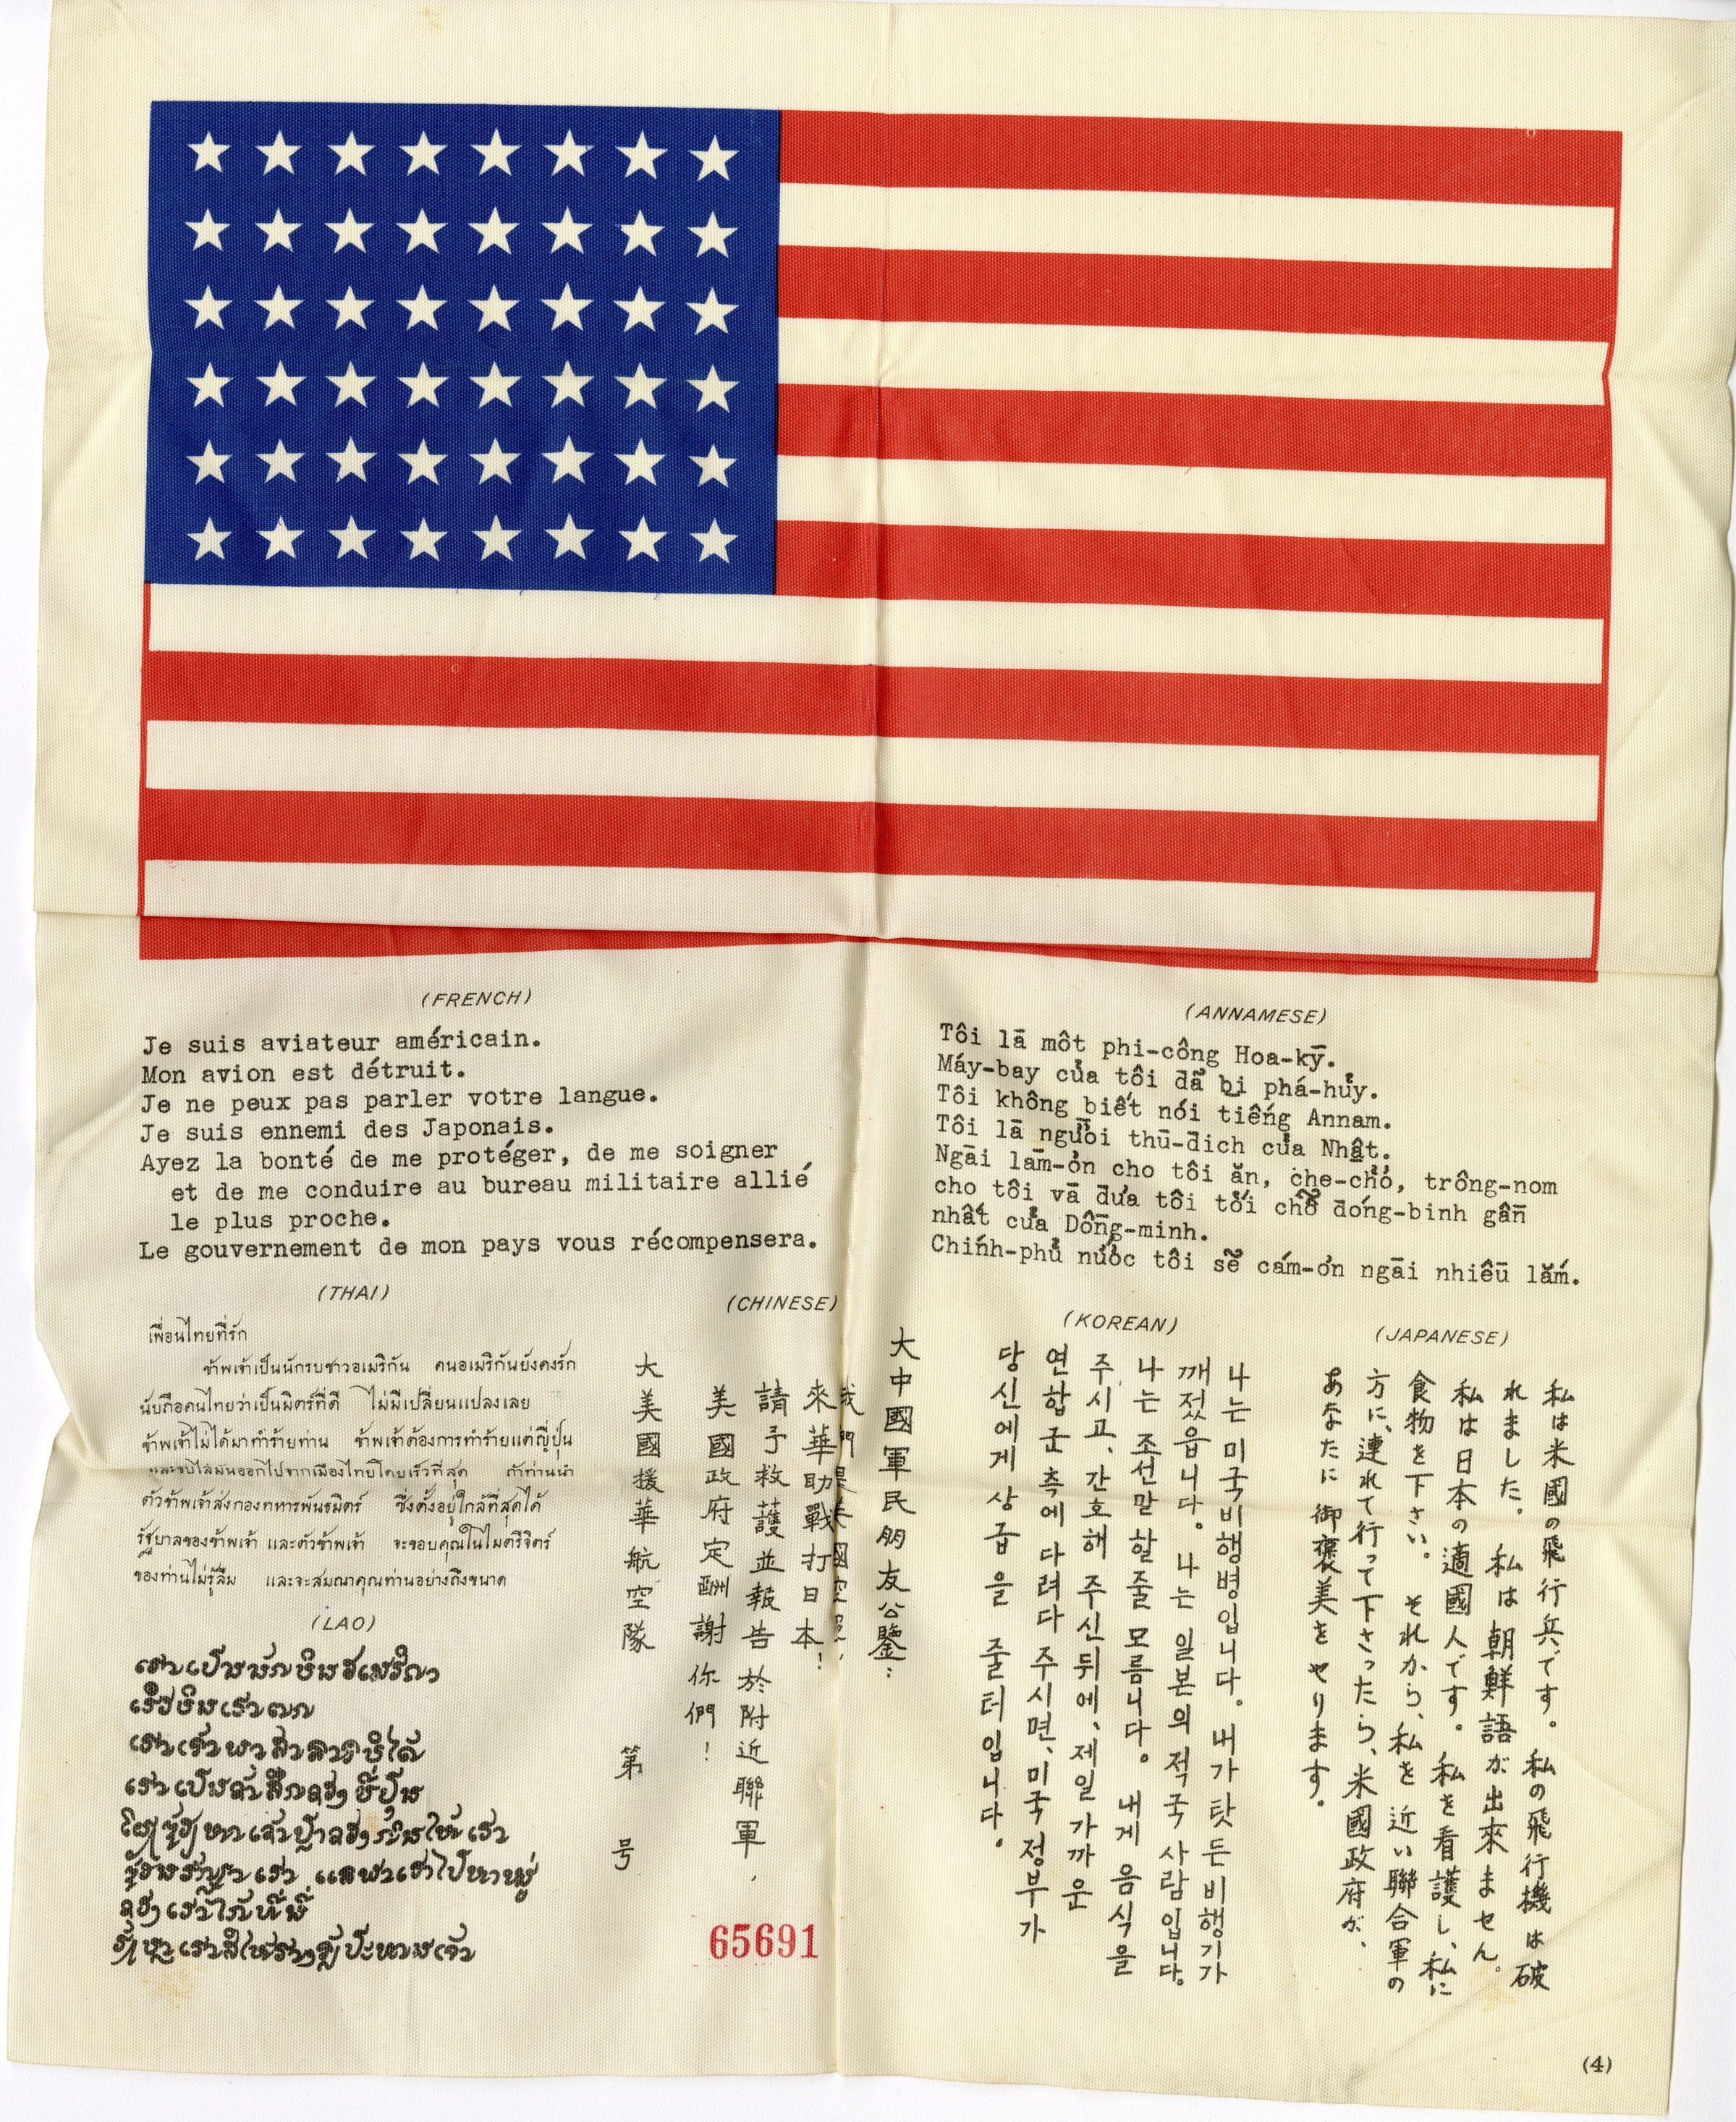 (FRENCH)
Je suis aviateur américain.
Mon avion est détruit.
Je ne peux pas parler votre langue.
Je suis ennemi des Japonais.
Ayez la bonté de me protéger, de me soigner
et de me conduire au bureau militaire allié
le plus proche.
Le gouvernement de mon pays vous récompensera.
(ANNAMESE)
Tôi lā môt phi-công Hoa-kȳ.
Máy-bay của tôi đẫ bị phá-hủy.
Tôi không biết nói tiếng Annam.
Tôi lā người thū-đich của Nhật.
Ngāi lām-ơn cho tôi ăn, che-chỏ, trông-nom
cho tôi vā đưa tôi tới chỗ đóng-binh gần
nhất của Đồng-minh.
Chính-phủ nước tôi sẽ cám-ơn ngāi nhiêū lắm.
(THAI)
เพื่อนไทยที่รัก
ข้าพเจ้าเป็นนักรบชาวอเมริกัน คนอเมริกันยังคงรัก
นับถือคนไทยว่าเป็นมิตร์ที่ดี ไม่มีเปลี่ยนแปลงเลย
ข้าพเจ้าไม่ได้มาทำร้ายท่าน ข้าพเจ้าต้องการทำร้ายแต่ญี่ปุ่น
และขับไล่มันออกไปจากเมืองไทยโดยเร็วที่สุด ถ้าท่านนำ
ตัวข้าพเจ้าส่งกองทหารพันธมิตร์ ซึ่งตั้งอยู่ใกล้ที่สุดได้
รัฐบาลของข้าพเจ้า และตัวข้าพเจ้า จะขอบคุณในไมตรีจิตร์
ของท่านไม่รู้ลืม และจะสมณาคุณท่านอย่างถึงขนาด
(LAO)
(CHINESE)
大中國軍民朋友公鑒：
我們是美國空軍，
來華助戰打日本！
請予救護並報告於附近聯軍，
美國政府定酬謝你們！
大美國援華航空隊
第 号
65691
(KOREAN)
나는 미국비행병입니다. 내가 탓든 비행기가
깨젔읍니다. 나는 일본의 적국 사람입니다.
나는 조선말 할줄 모릅니다. 내게 음식을
주시고, 간호해 주신뒤에, 제일 가까운
연합군 측에 다려다 주시면, 미국정부가
당신에게 상급을 줄터입니다.
(JAPANESE)
私は米國の飛行兵です。私の飛行機は破
れました。私は朝鮮語が出來ません。
私は日本の適國人です。私を看護し、私に
食物を下さい。それから、私を近い聯合軍の
方に、連れて行って下さったら、米國政府が、
あなたに御褒美をやります。
(4)